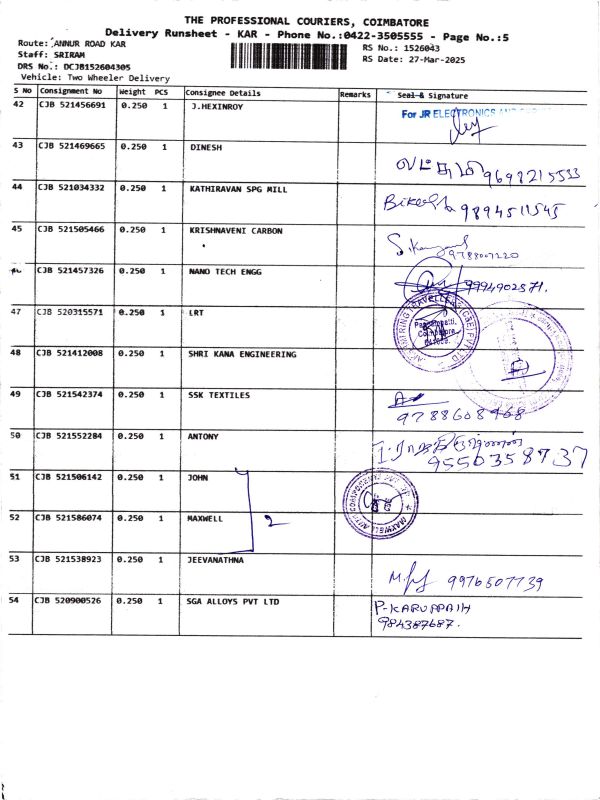 THE PROFESSIONAL COURIERS, COIMBATORE
Delivery Runsheet - KAR - Phone No.:0422-3505555 - Page No.:5
Route: ANNUR ROAD KAR
RS No.: 1526043
Staff: SRIRAM
RS Date: 27-Mar-2025
DRS No.: DCJB152604305
Vehicle: Two Wheeler Delivery
S No Consignment No Weight PCS Consignee Details Remarks Seal & Signature
42 CJB 521456691 0.250 1 J.HEXINROY For JR ELECTRONICS
43 CJB 521469665 0.250 1 DINESH 9698215533
44 CJB 521034332 0.250 1 KATHIRAVAN SPG MILL 9894511545
45 CJB 521505466 0.250 1 KRISHNAVENI CARBON 9788007220
CJB 521457326 0.250 1 NANO TECH ENGG 9994902571.
47 CJB 520315571 0.250 1 LRT
48 CJB 521412008 0.250 1 SHRI KANA ENGINEERING
49 CJB 521542374 0.250 1 SSK TEXTILES 9788608968
50 CJB 521552284 0.250 1 ANTONY 9550358737
51 CJB 521506142 0.250 1 JOHN
52 CJB 521586074 0.250 1 MAXWELL 2
53 CJB 521538923 0.250 1 JEEVANATHNA 9976507739
54 CJB 520900526 0.250 1 SGA ALLOYS PVT LTD P-KARUPPAIH
984387687.